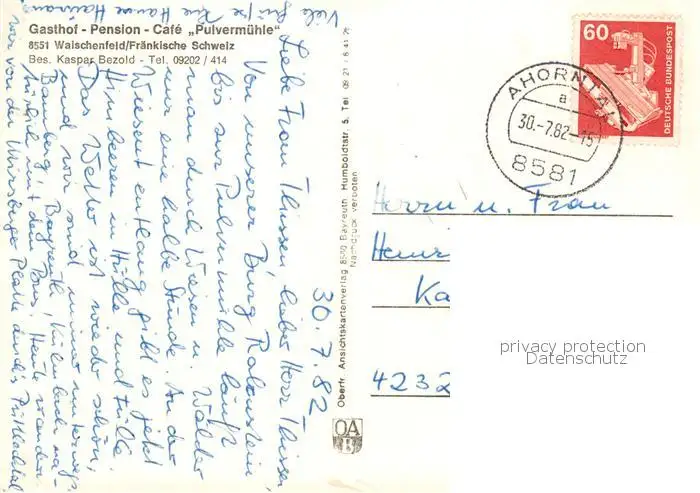 Gasthof - Pension - Café „Pulvermühle"
8551 Waischenfeld/Fränkische Schweiz
Bes. Kaspar Bezold - Tel. 09202 / 414
30. 7. 82
Liebe Frau Thissen, lieber Herr Thissen,
Von unserer Burg Rabenstein
bis zur Pulvermühle läuft
man durch Wiesen u. Wälder
nur eine halbe Stunde. An der
Wiesent entlang gibt es jetzt
Himbeeren in Hülle und Fülle.
Das Wetter ist wieder schön,
und wir sind immer unterwegs.
Bamberg, Bayreuth, Kulmbach na-
türlich mit dem Bus. Heute wander-
ten wir von der Burg
Viele Grüße Ihre
Oberfr. Ansichtskartenverlag 8580 Bayreuth, Humboldtstr. 5, Tel. 09 21 /
Nachdruck verboten
OA
B
60
DEUTSCHE BUNDESPOST
AHORNTAL
a
30.-7.82-15
8581
Herrn u. Frau
Heinr
Ka
4232
privacy protection
Datenschutz